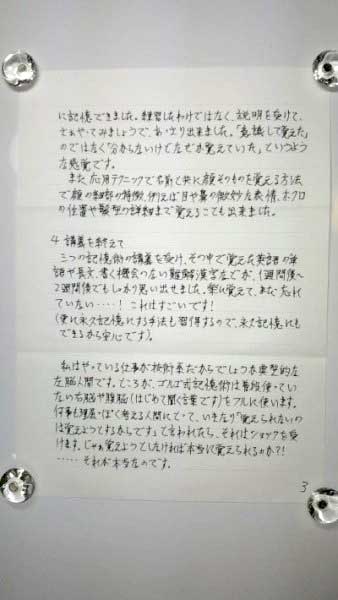 に記憶できました。練習したわけではなく、説明を受けて、
さぁやってみましょうで、あっさり出来ました。「意識して覚えた」
のではなく「分からないけどなぜか覚えていた」というような
感覚です。
また、応用テクニックで名前と共に顔そのものを覚える方法
で顔の細部の特徴、例えば目や鼻の微妙な表情、ホクロ
の位置や髪型の詳細まで覚えることも出来ました。
4 講義を終えて
三つの記憶術の講義を受け、その中で覚えた英語の単
語や長文、書く機会のない難解漢字などが、1週間後〜
2週間後でもしっかり思い出せました。楽に覚えて、まだ忘れ
ていない・・・・! これはすごいです!
(更に永久記憶にする手法も習得するので、永久記憶にも
できるから安心です)。
私はやっている仕事が技術系だからでしょうか典型的な
左脳人間です。ところが、ゴルゴ式記憶術は普段使ってい
ない右脳や腹脳(はじめて聞く言葉です)をフルに使います。
何事も理屈っぽく考える人間にとって、いきなり「覚えられないの
は覚えようとするからです」て言われたら、それはショックを受
けます。じゃぁ覚えようとしなければ本当に覚えられるのか?!
・・・・・それが本当なのです。
3